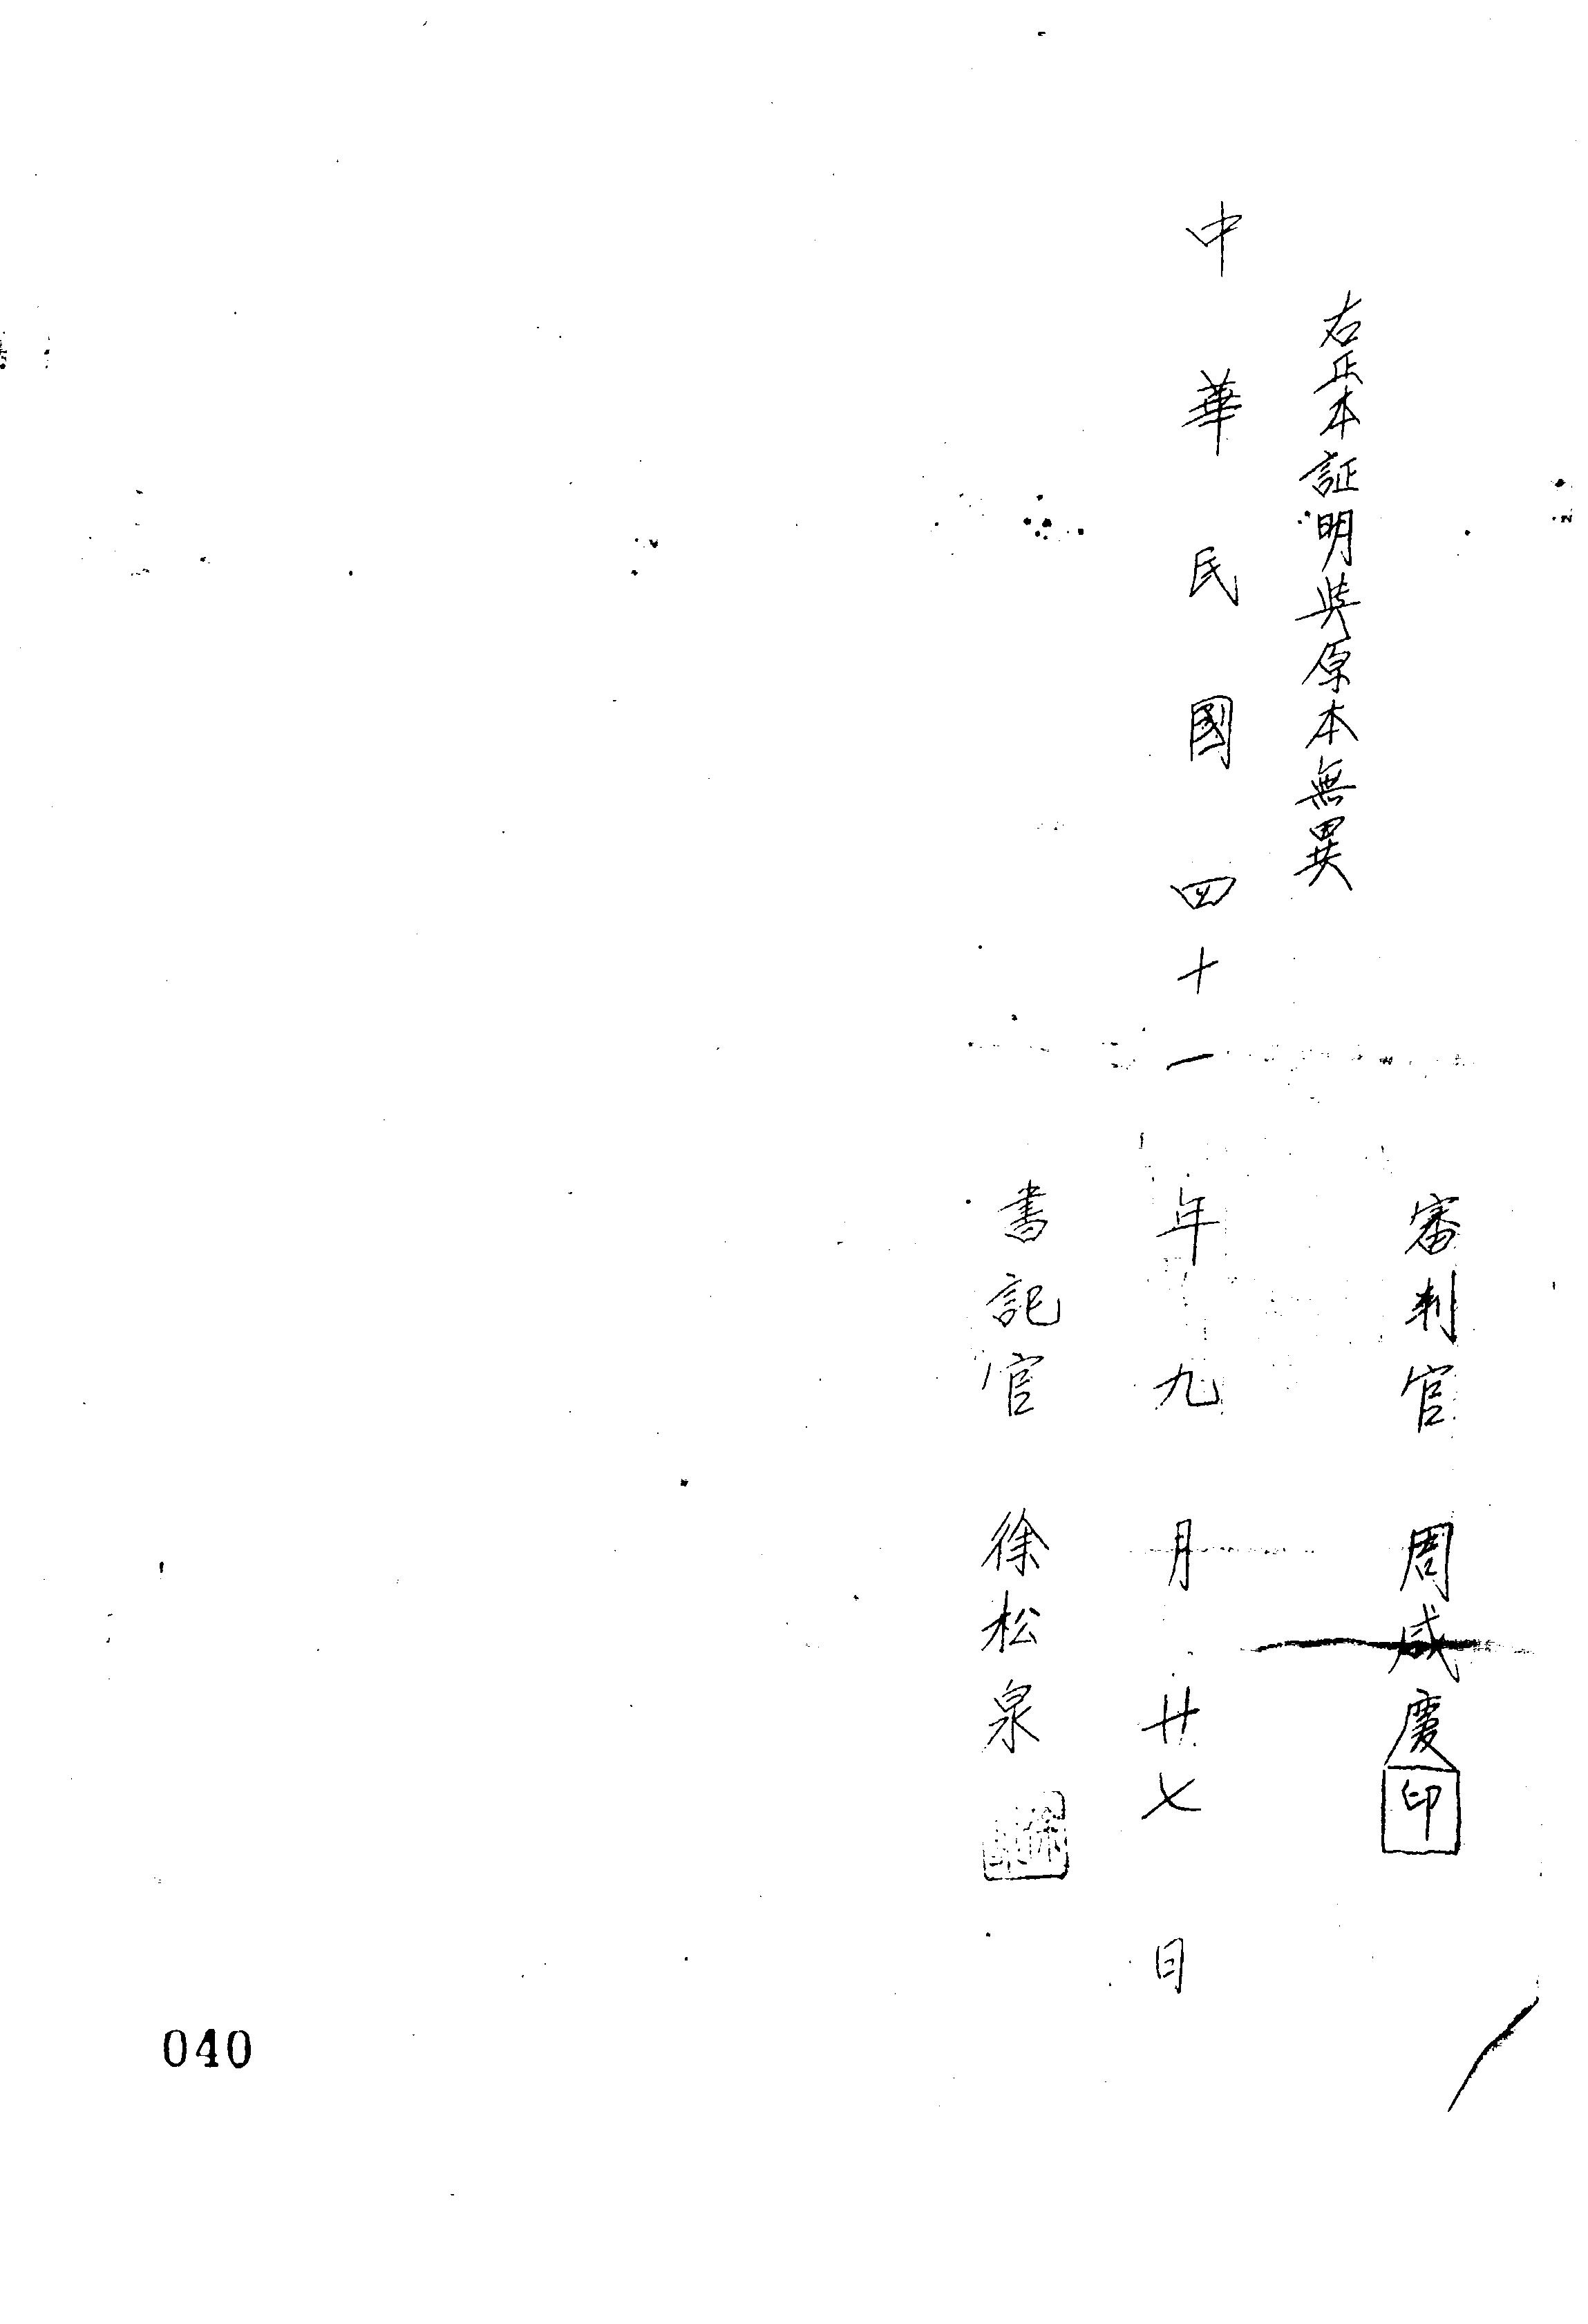 審判官 周咸慶 印
右正本証明與原本無異
中華民國四十一年九月廿七日
書記官 徐松泉
040